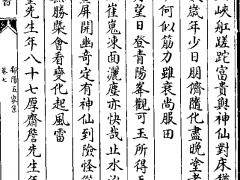 峽舡蹉跎富貴與神仙對床穩
歲年少日朋儕隨化盡晚塗
何似筋力雖衰尚服田
望日登青陽峯觀可玉所得
崔嵬凍面灑塵亦快哉止水
屏開幽奇定有神仙到險怪
無勝槩會看變化起風雷
先生年八十七厚齋詹先生年
鄱陽五家集
卷七